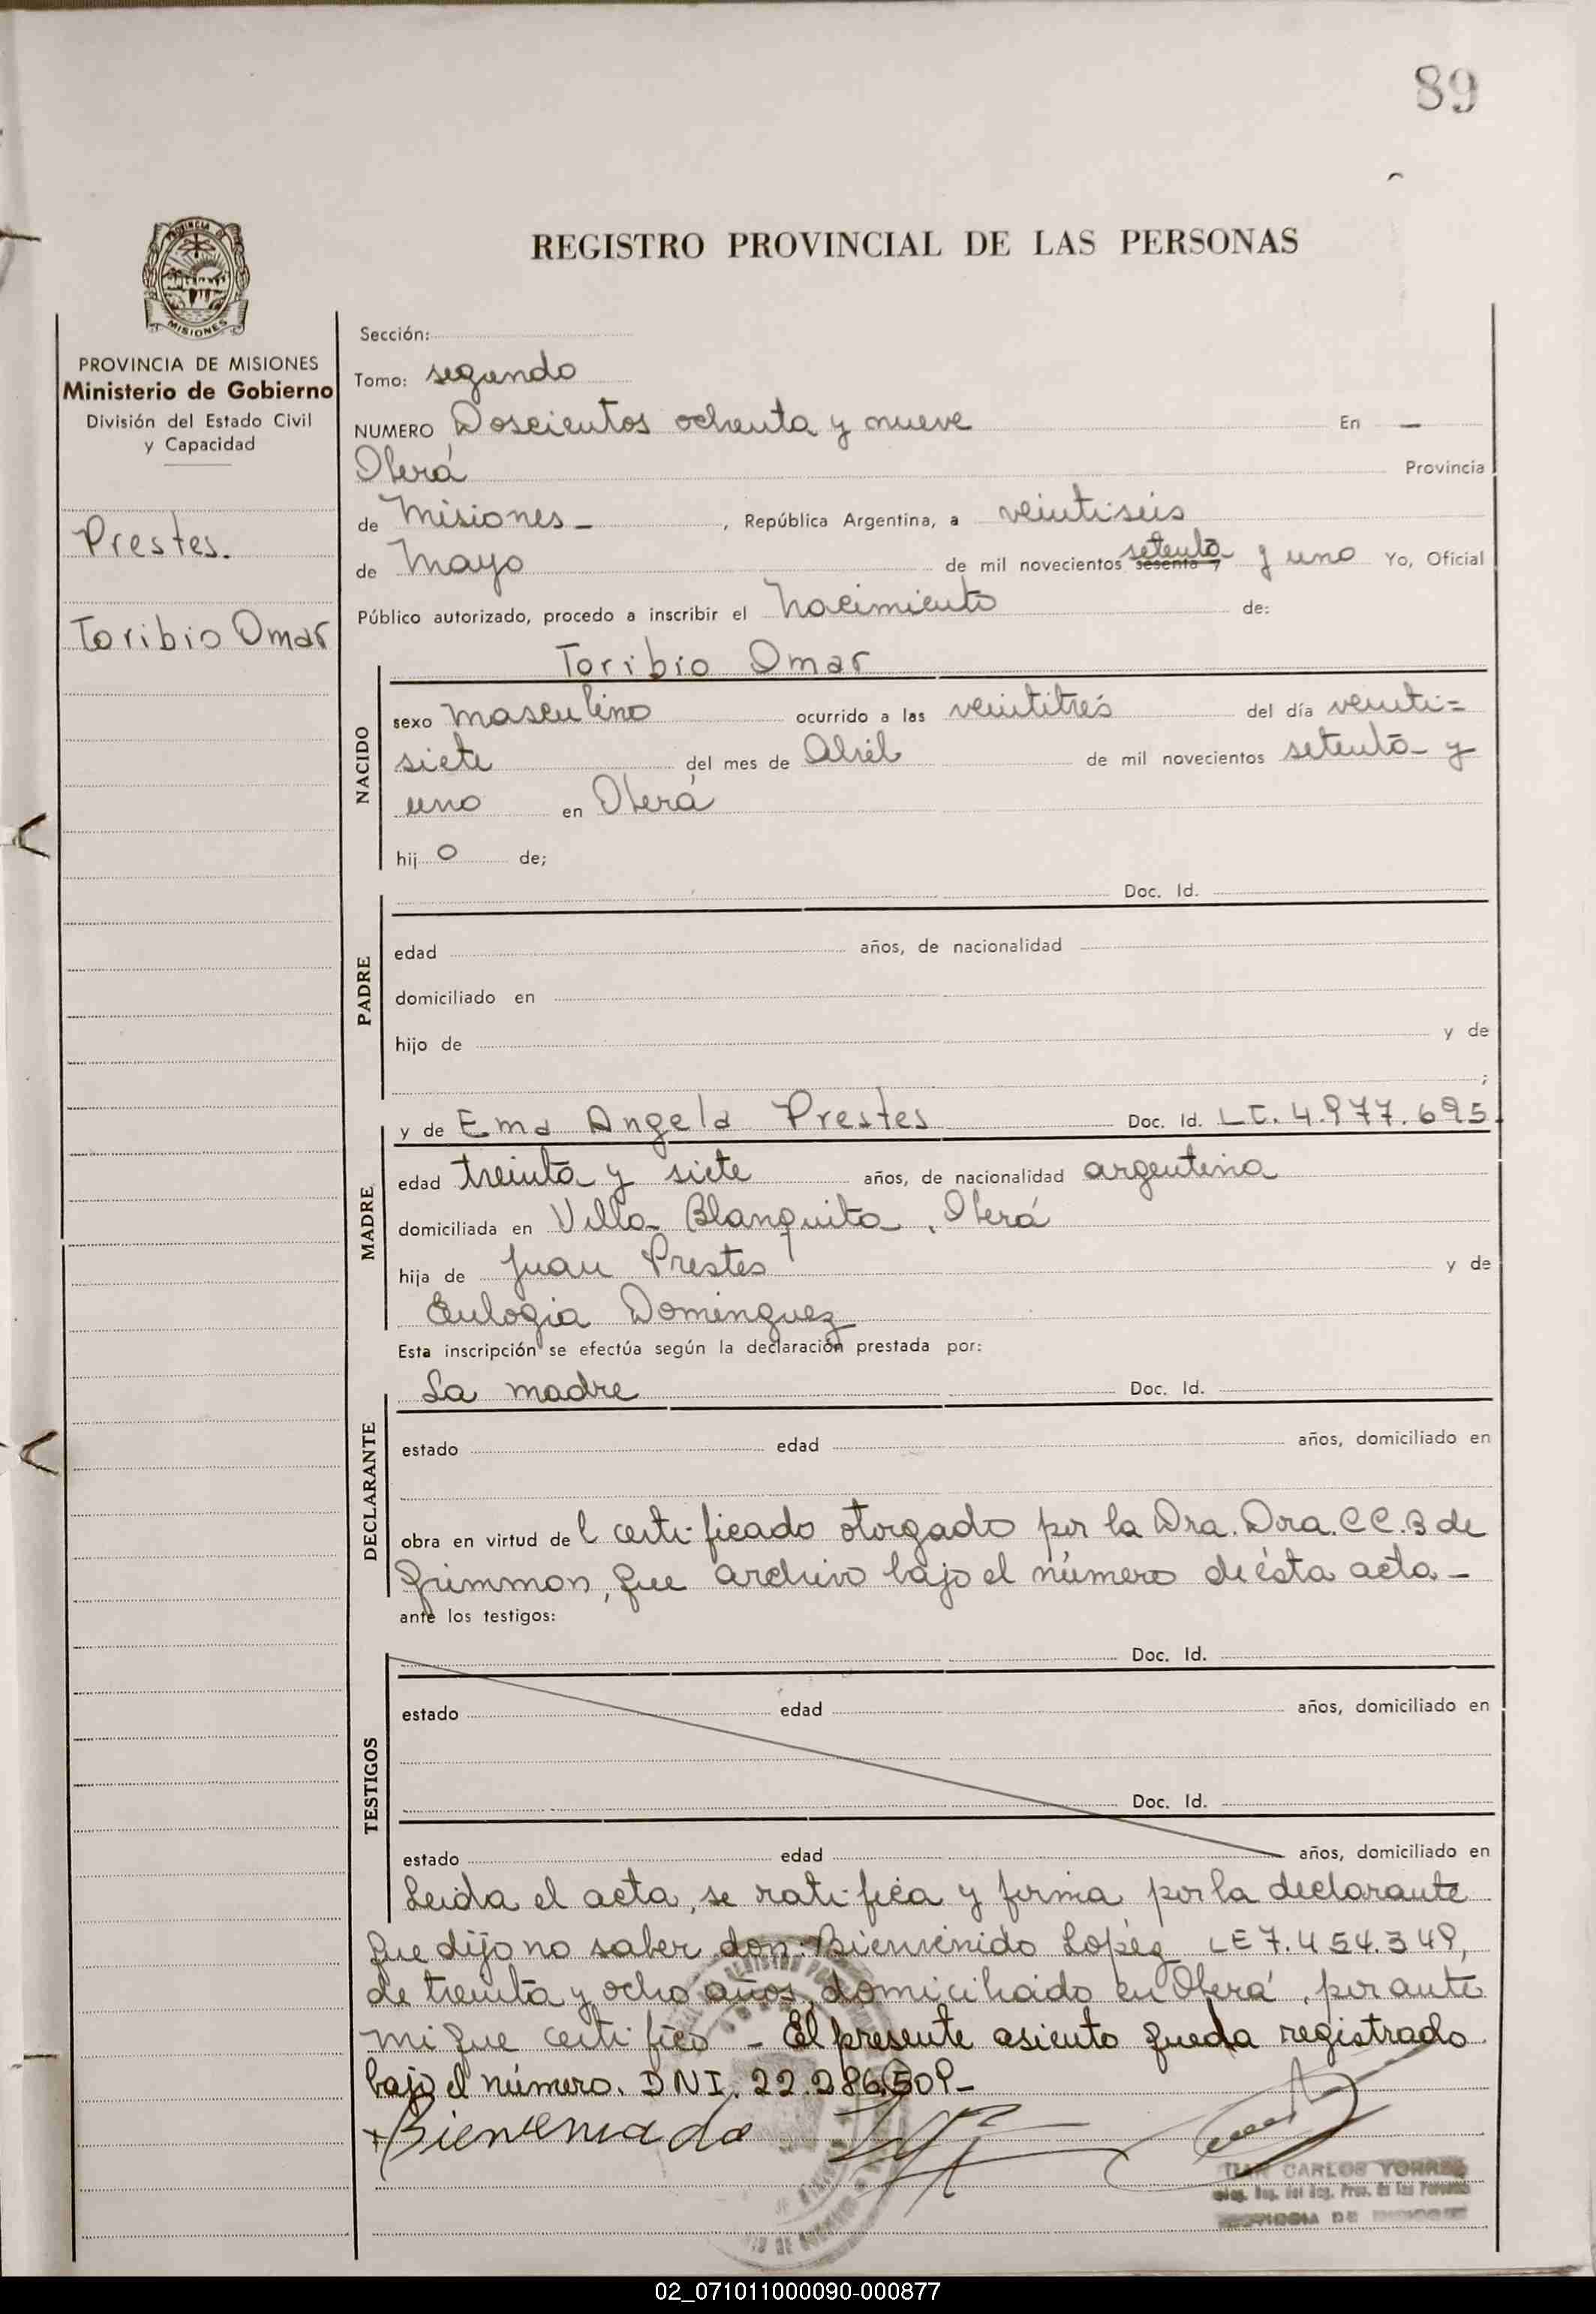 89
PROVINCIA DE
MISIONES
REGISTRO PROVINCIAL DE LAS PERSONAS
PROVINCIA DE MISIONES
Ministerio de Gobierno
División del Estado Civil
y Capacidad
Prestes.
Toribio Omar
Sección:
Tomo: segundo
NUMERO Doscientos ochenta y nueve En —
Oberá Provincia
de Misiones — , República Argentina, a veintiseis
de Mayo de mil novecientos sesenta y setenta y uno Yo, Oficial
Público autorizado, procedo a inscribir el Nacimiento de:
Toribio Omar
NACIDO
sexo masculino ocurrido a las veintitrés del día veinti=
siete del mes de Abril de mil novecientos setenta y
uno en Oberá
hij o de;
Doc. Id.
PADRE
edad años, de nacionalidad
domiciliado en
hijo de y de
;
MADRE
y de Ema Angela Prestes Doc. Id. LC. 4.977.695.
edad treinta y siete años, de nacionalidad argentina
domiciliada en Villa Blanquita, Oberá
hija de Juan Prestes y de
Eulogia Dominguez
Esta inscripción se efectúa según la declaración prestada por:
DECLARANTE
La madre Doc. Id.
estado edad años, domiciliado en
obra en virtud de l certificado otorgado por la Dra. Dora. C C. B de
Grimmon, que archivo bajo el número de ésta acta —
ante los testigos:
TESTIGOS
Doc. Id.
estado edad años, domiciliado en
Doc. Id.
estado edad años, domiciliado en
Leida el acta, se ratifica y firma por la declarante
que dijo no saber don: Bienvenido Lopéz LE 7.454.349,
de treinta y ocho años, domiciliado en Oberá, por ante
mi que certifico — El presente asiento queda registrado
bajo el número. DNI. 22.286.509 —
Bienvenido
CARLOS TORRES
02_071011000090-000877